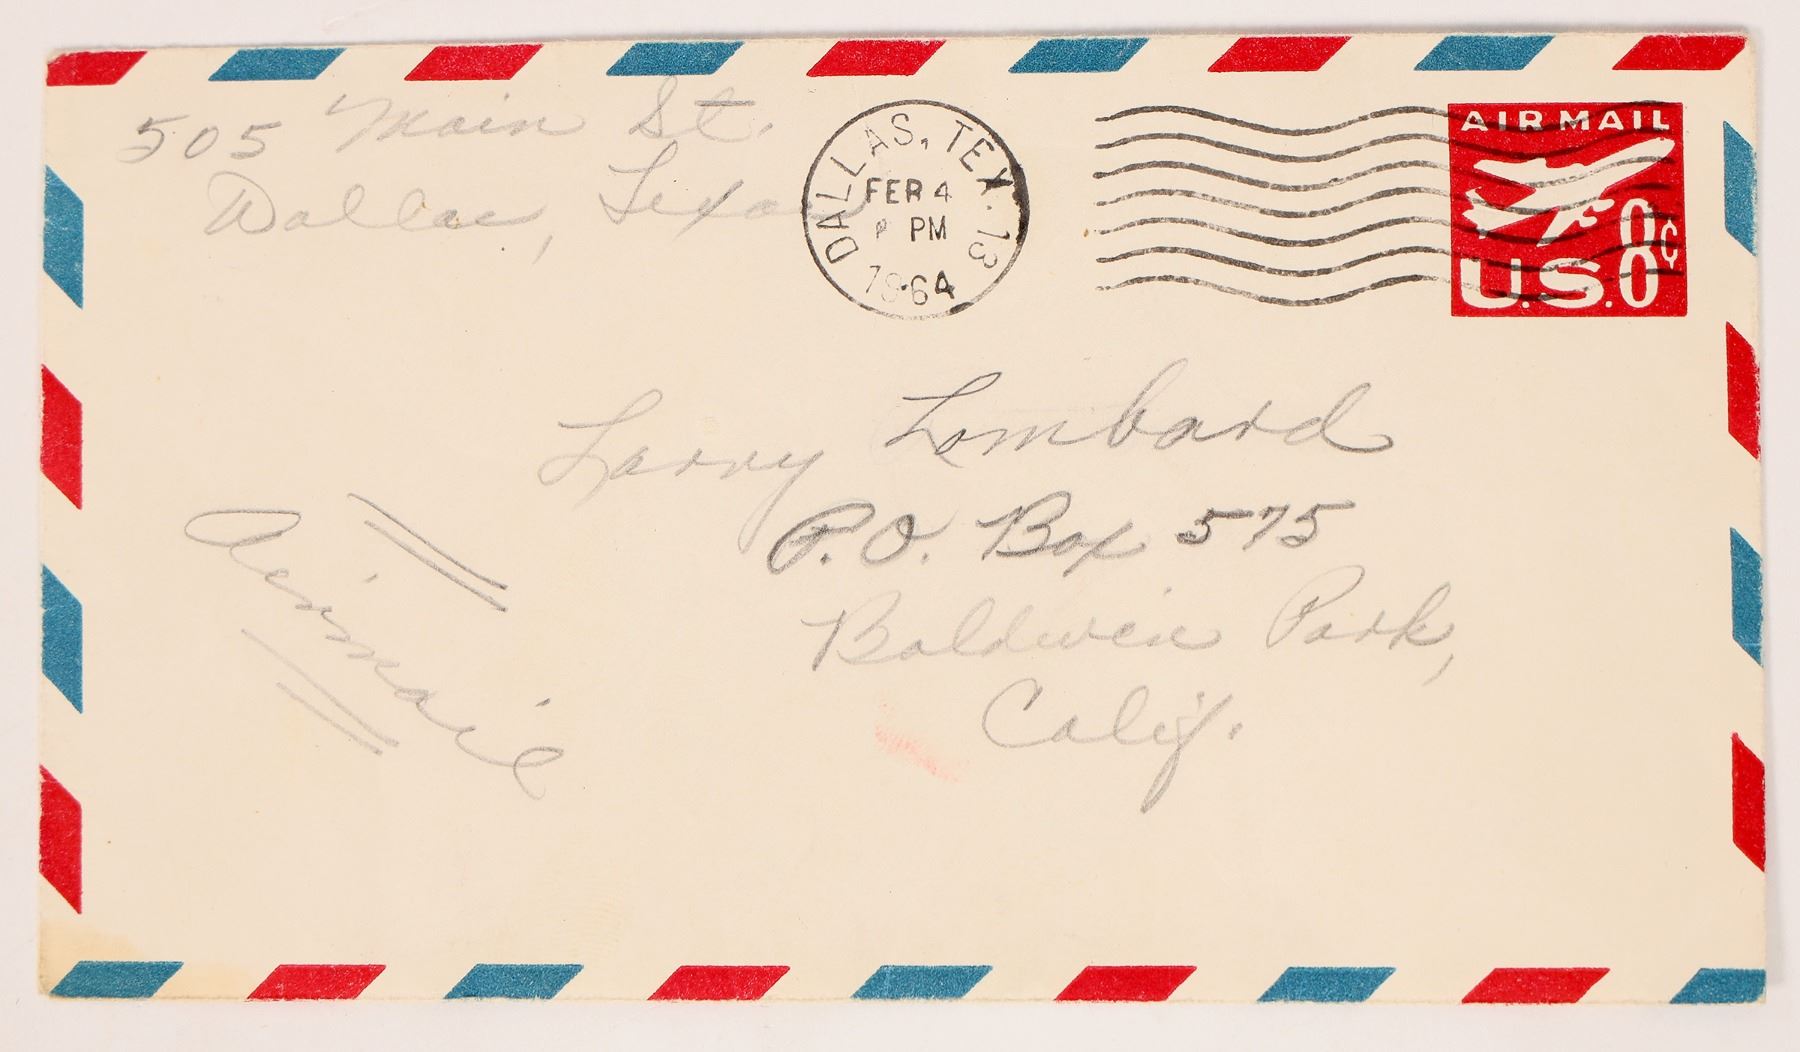 505 Main St.
Dallas, Texas
DALLAS, TEX. 13
FEB 4
PM
1964
AIR MAIL
8¢
U.S.
Larry Lombard
P.O. Box 575
Baldwin Park,
Calif.
Airmail